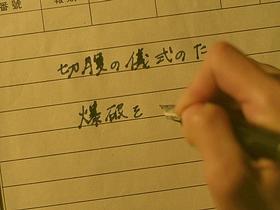 番號
切腹の儀式のた
爆破を